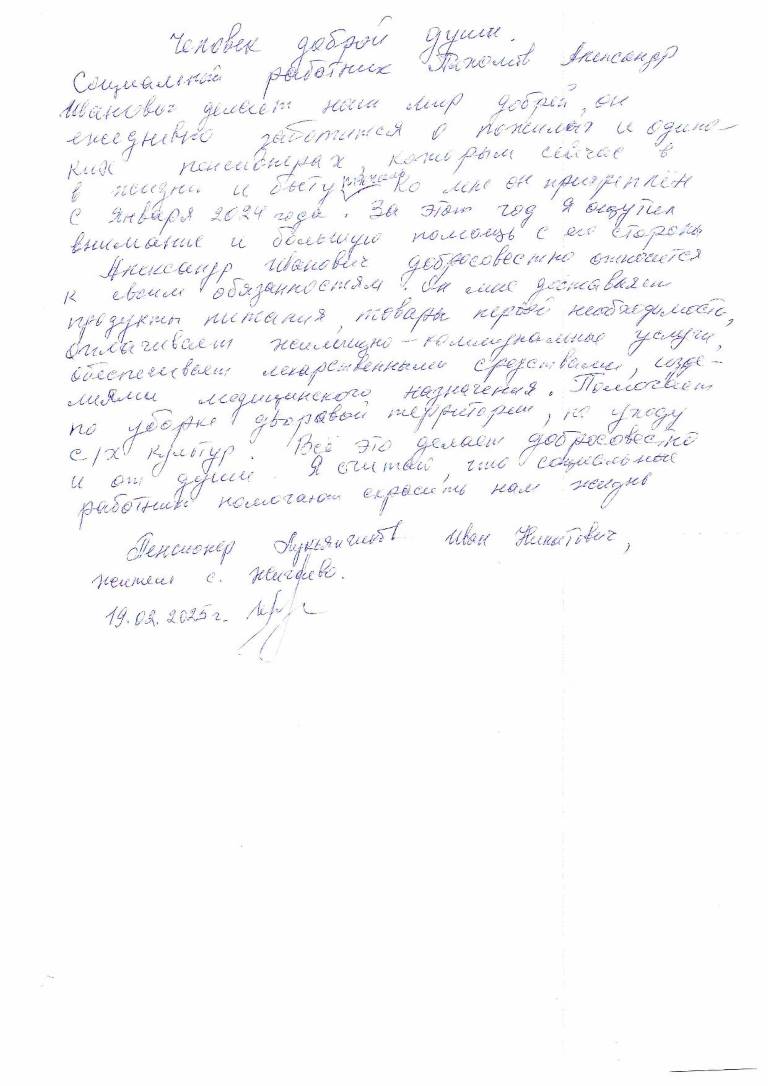 Человек доброй души.
Социальный работник Пахолков Александр
Иванович делает наш мир добрей, он
ежедневно заботится о пожилых и одино-
ких пенсионерах, которым сейчас в
в жизни и быту тяжело. Ко мне он прикреплён
с января 2024 года. За этот год я ощутил
внимание и большую помощь с его стороны
Александр Иванович добросовестно относится
к своим обязанностям. Он мне доставляет
продукты питания, товары первой необходимости,
оплачивает жилищно-коммунальные услуги,
обеспечивает лекарственными средствами, изде-
лиями медицинского назначения. Помогает
по уборке дворовой территории, по уходу
с/х культур. Всё это делает добросовестно
и от души. Я считаю, что социальные
работники помогают скрасить нам жизнь
Пенсионер Лукьянчиков Иван Игнатович,
житель с.
19.02.2025 г.